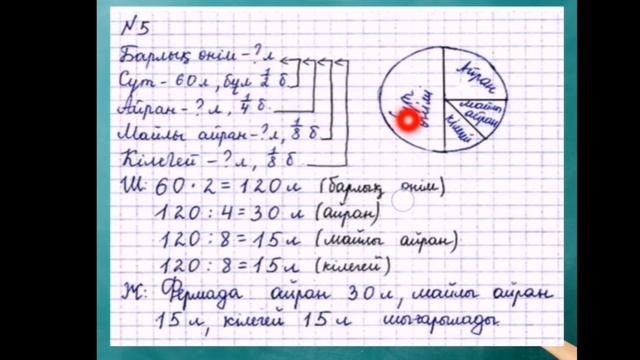 №5
Барлық өнім - ? л
Сүт - 60 л, бұл 1/2 б
Айран - ? л, 1/4 б.
Майлы айран - ? л, 1/8 б
Кілегей - ? л, 1/8 б
Айран
майлы
айран
кілегей
сүт
өнім
Ш: 60 · 2 = 120 л (барлық өнім)
120 : 4 = 30 л (айран)
120 : 8 = 15 л (майлы айран)
120 : 8 = 15 л (кілегей)
Ж: Фермада айран 30 л, майлы айран
15 л, кілегей 15 л шығарылады.